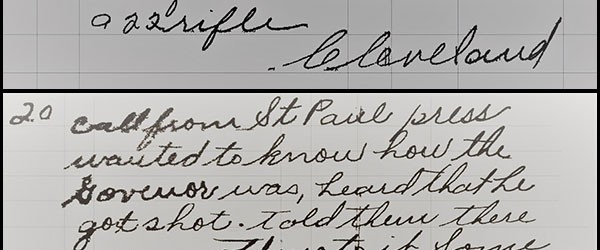 a 22 rifle
Cleveland
20 call from St Paul press
wanted to know how the
Govenor was, heard that he
got shot. told them there